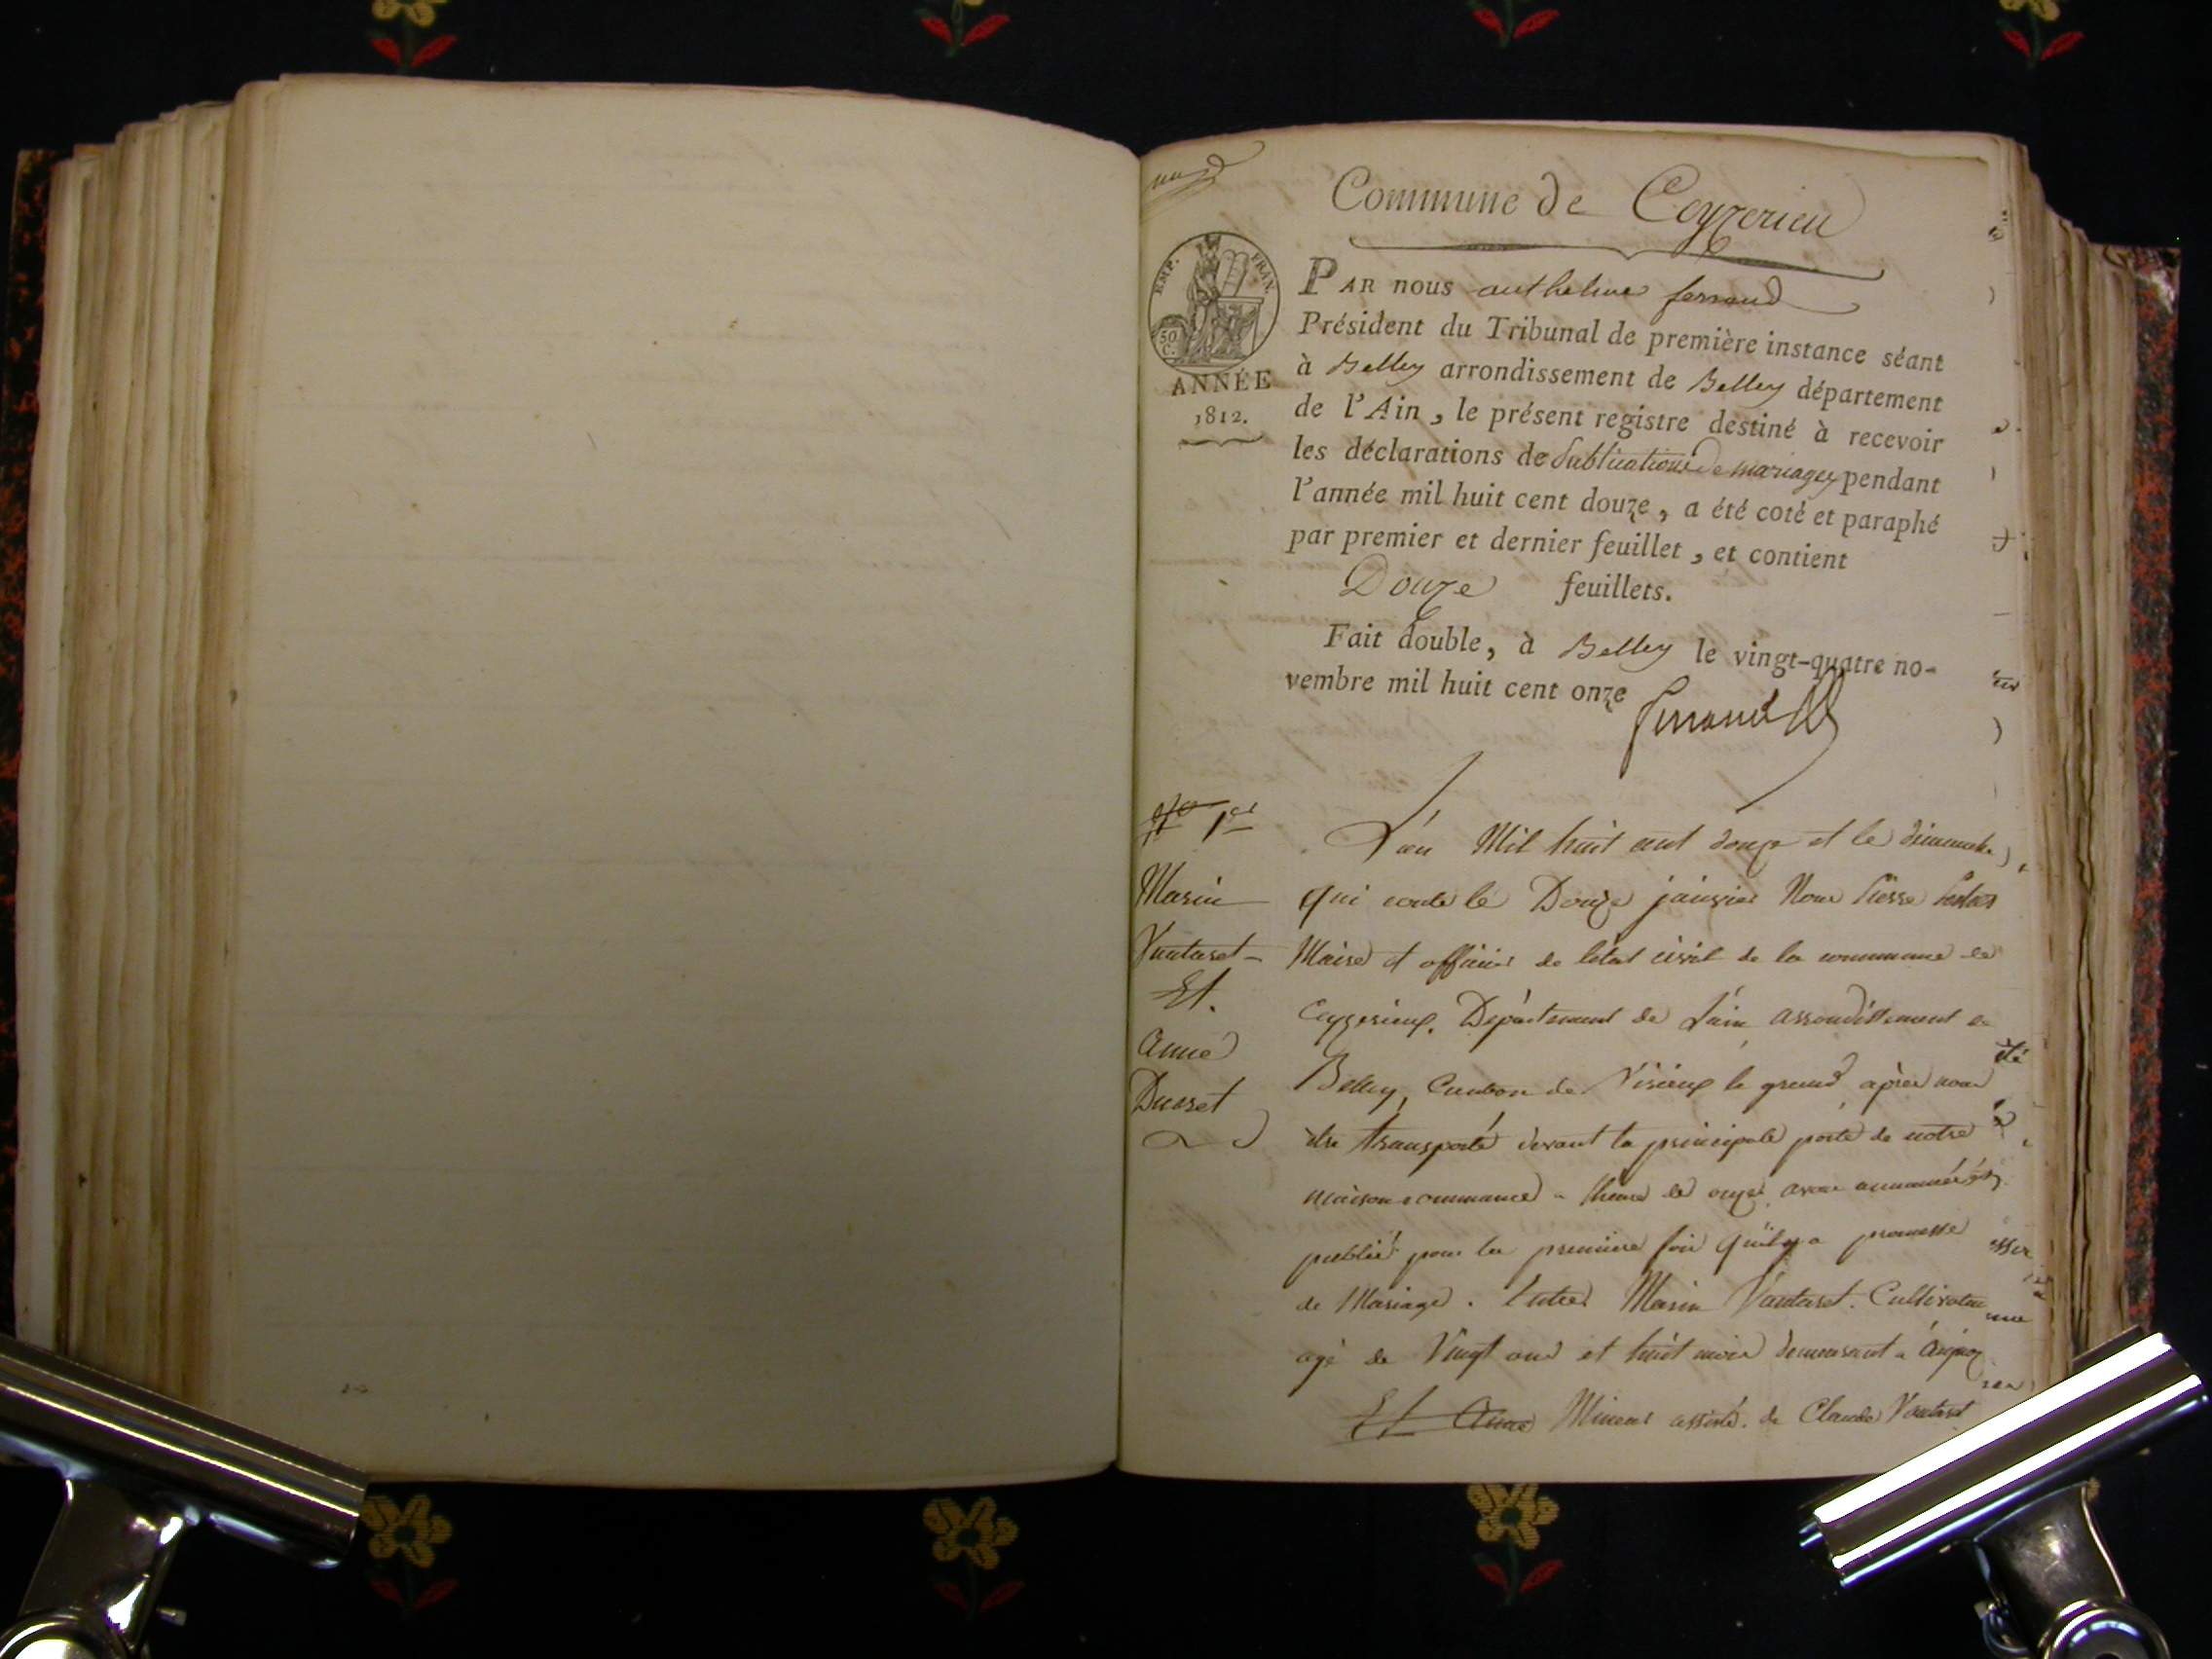 Commune de Ceyzerieu
EMP. FRAN.
50 C.
ANNÉE
1812.
PAR nous anthelme ferrand
Président du Tribunal de première instance séant
à Belley arrondissement de Belley département
de l'Ain, le présent registre destiné à recevoir
les déclarations de Publications de mariages pendant
l'année mil huit cent douze, a été coté et paraphé
par premier et dernier feuillet, et contient
Douze feuillets.
Fait double, à Belley le vingt-quatre no-
vembre mil huit cent onze
N° 1er
Marin
Vautaret
Et.
Anne
Ducret
L'an Mil huit cent douze et le dimanche
qui conte le Douze janvier Nous Pierre
Maire et officier de létat civil de la commune de
Ceyzerieux. Département de Lain arrondissement de
Belley, Canton de Virieux le grand après nous
être transporté devant la principale porte de notre
maison commune a lheure de onze avon annoncé et
publié pour la premiere fois quil y a promesse
de Mariage. Entre Marin Vautaret. Cultivateur
agé de Vingt ans et huit mois demeurant a
Et Anne Mineur assisté. de Claude Vautaret